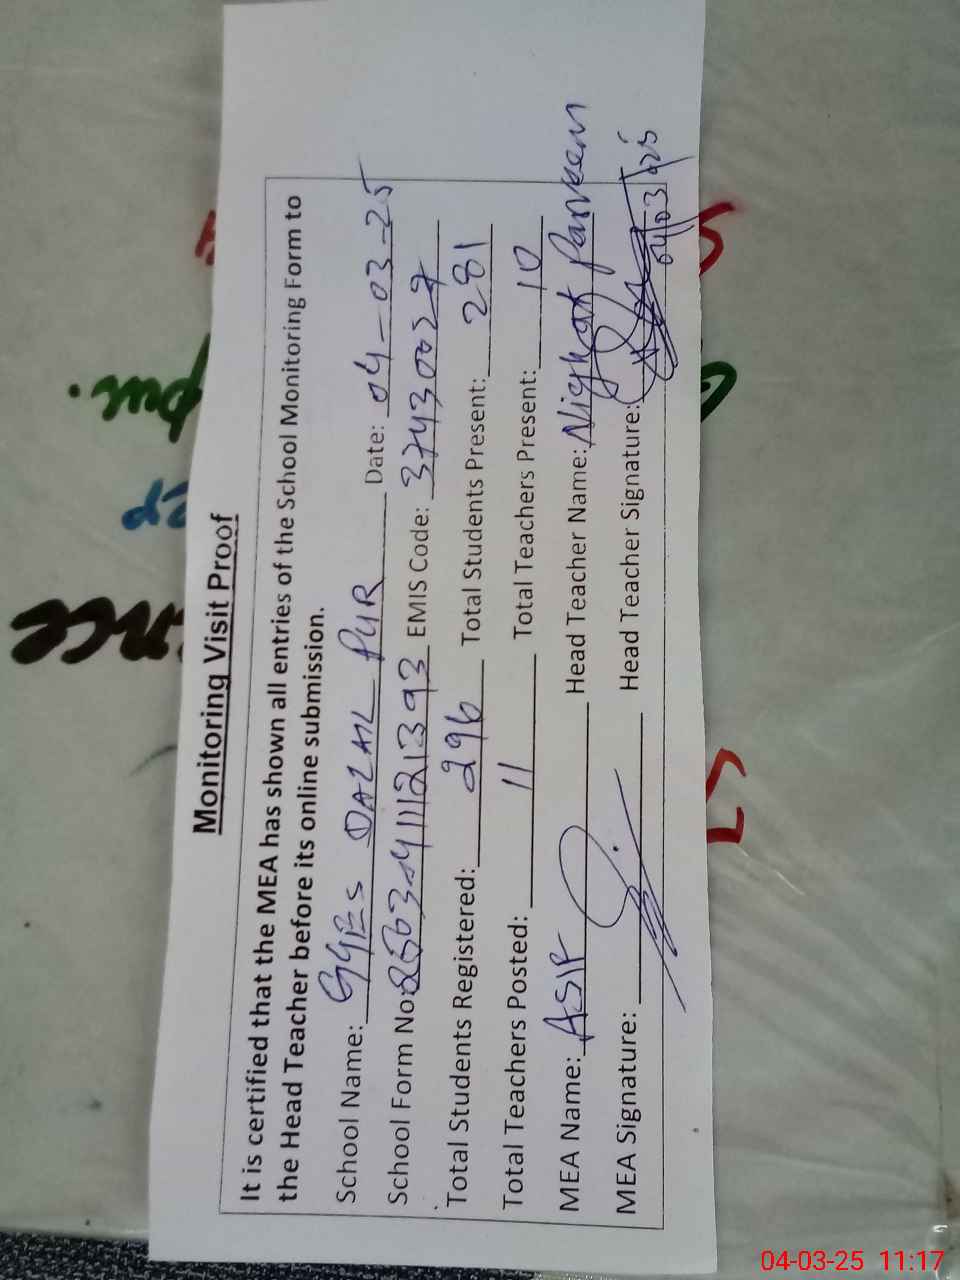 Monitoring Visit Proof
It is certified that the MEA has shown all entries of the School Monitoring Form to
the Head Teacher before its online submission.
School Name: GGES DALAIL PUR Date: 04-03-25
School Form No: EMIS Code: 37430027
Total Students Registered: 296 Total Students Present: 281
Total Teachers Posted: 11 Total Teachers Present: 10
MEA Name: ASIF Head Teacher Name: Nighat Parveen
MEA Signature: Head Teacher Signature: 04/03/25
pur.
nce
04-03-25 11:17